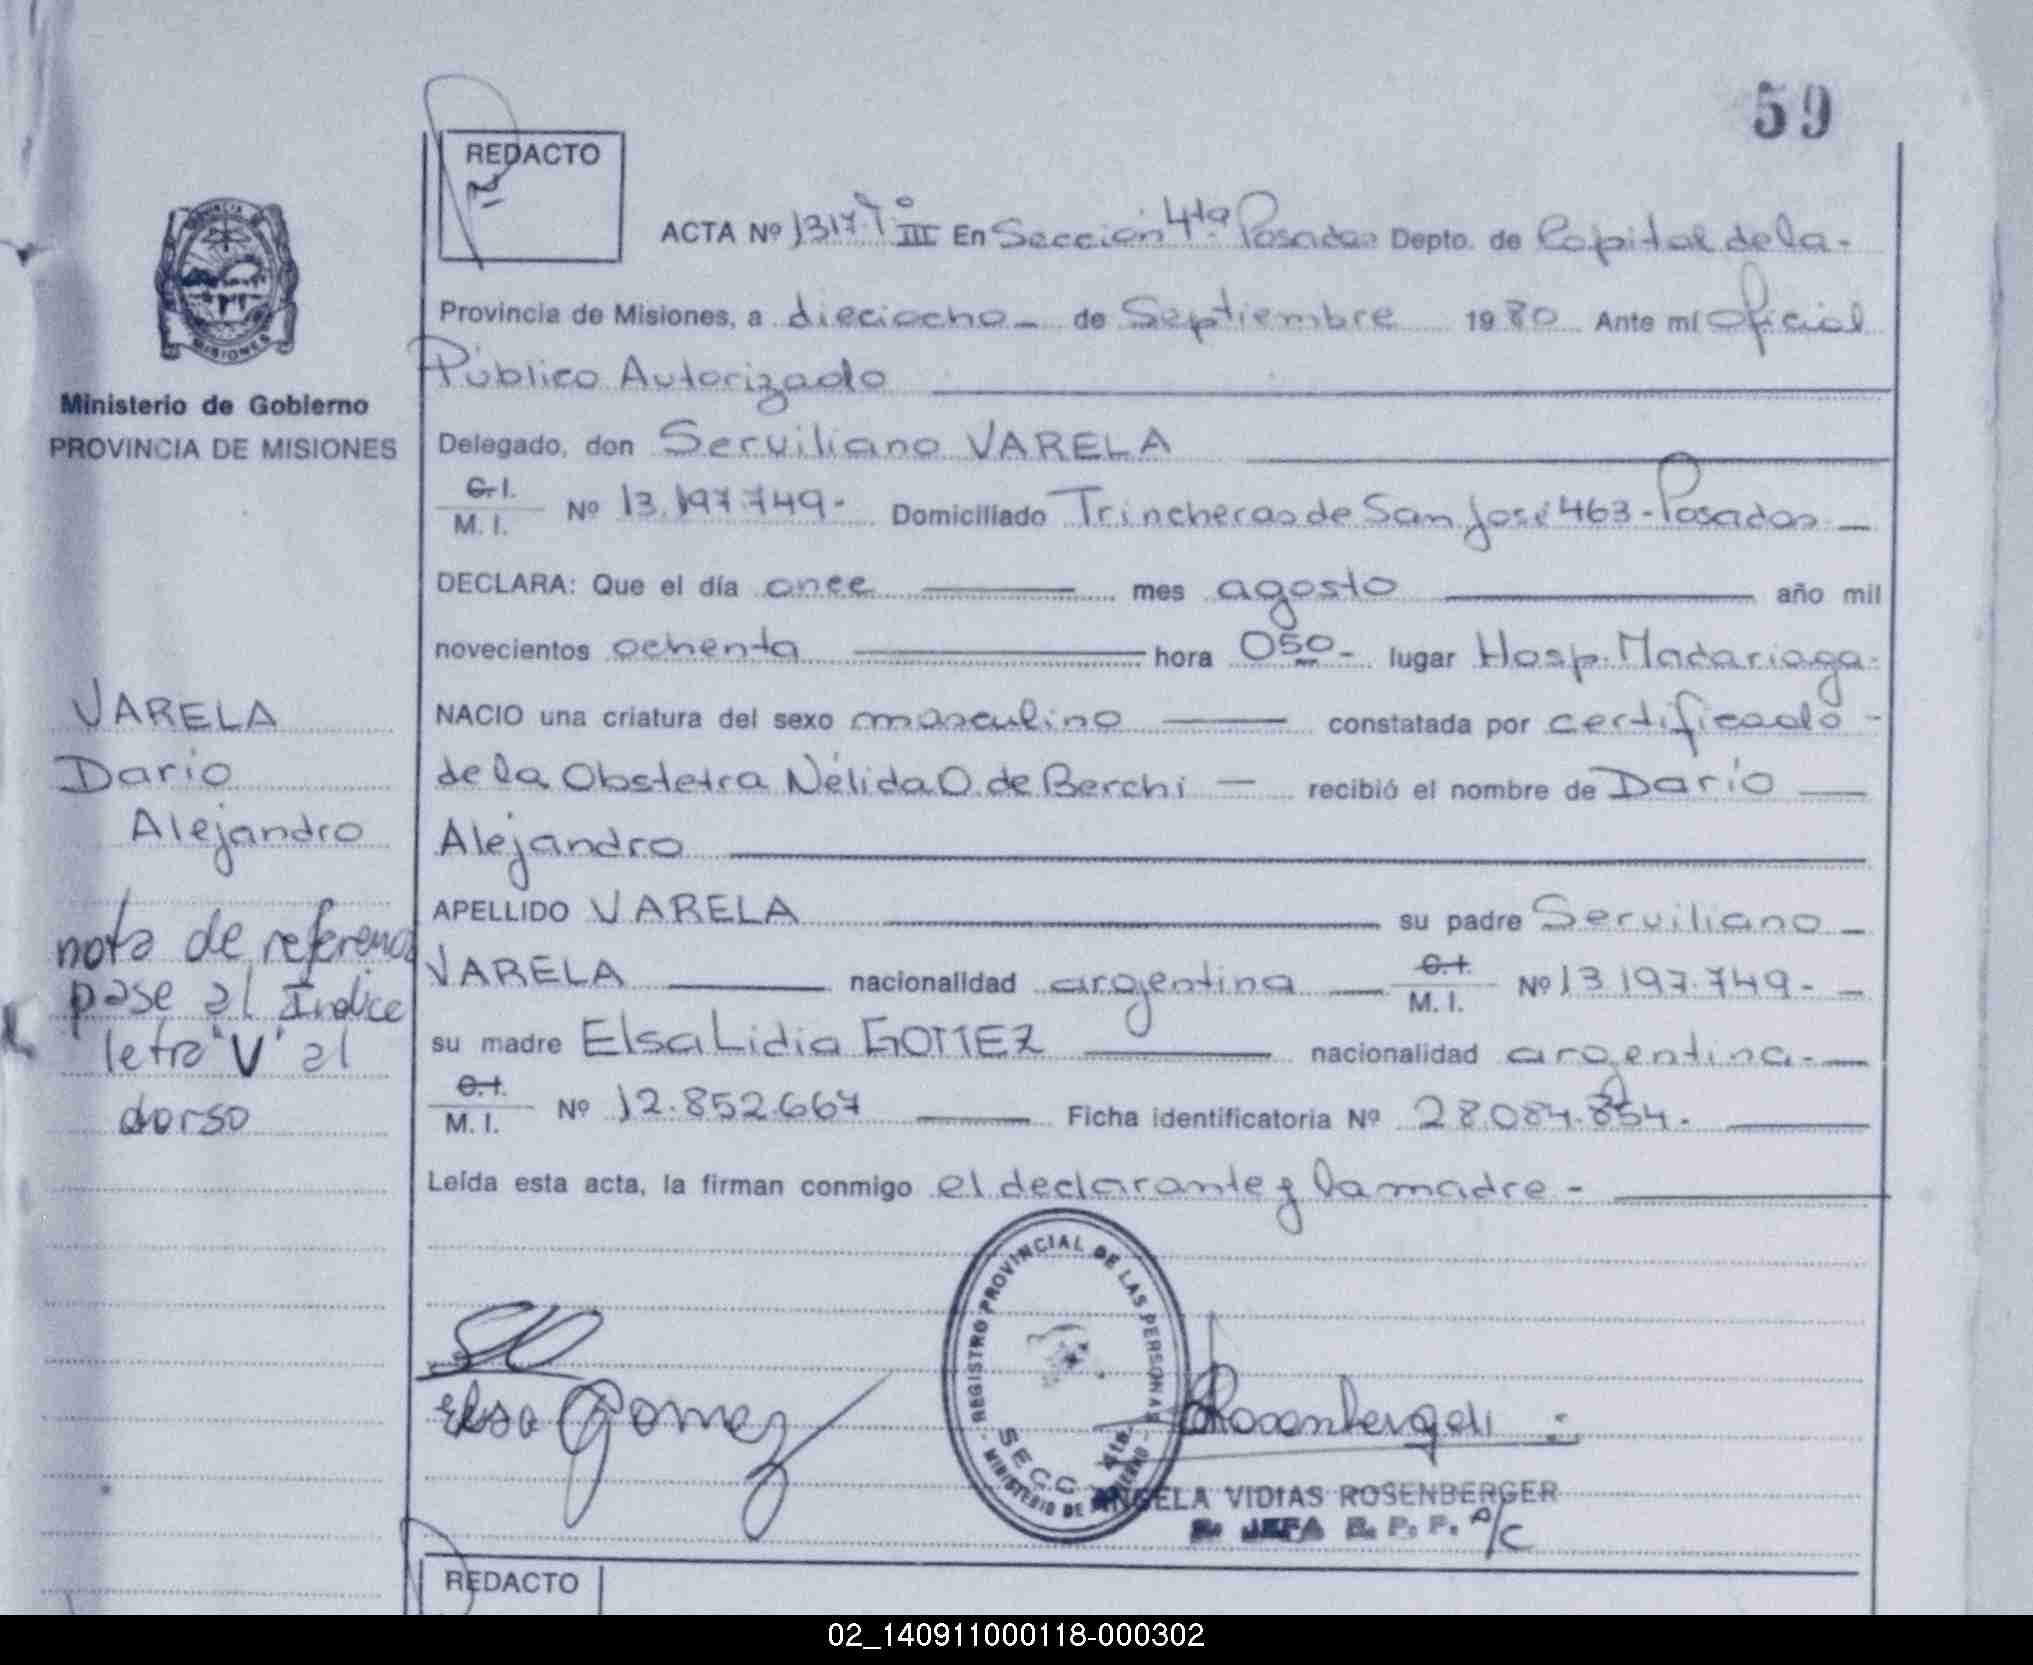 59
REDACTO
ACTA Nº 1317 Tº III En Sección 4ta Posadas Depto. de Capital de la-
Provincia de Misiones, a dieciocho- de Septiembre 1980 Ante mí Oficial
Público Autorizado
Delegado, don Serviliano VARELA
C. I.
M. I. Nº 13.197.749- Domiciliado Trincheras de San José 463-Posadas-
DECLARA: Que el día once mes agosto año mil
novecientos ochenta hora 050- lugar Hosp. Madariaga-
NACIO una criatura del sexo masculino constatada por certificado-
de la Obstetra Nélida O. de Berchi- recibió el nombre de Darío
Alejandro
APELLIDO VARELA su padre Serviliano-
VARELA nacionalidad argentina C. I.
M. I. Nº 13.197.749-
su madre Elsa Lidia GOMEZ nacionalidad argentina-
C. I.
M. I. Nº 12.852.667 Ficha identificatoria Nº 28.084.854-
Leída esta acta, la firman conmigo el declarante y la madre-
PROVINCIA DE
MISIONES
Ministerio de Gobierno
PROVINCIA DE MISIONES
VARELA
Darío
Alejandro
nota de referencia
pase al Indice
letra "V" al
dorso
Elsa Gomez
REGISTRO PROVINCIAL DE LAS PERSONAS
SECC. 4ta.
MINISTERIO DE GOBIERNO
ANGELA VIDIAS ROSENBERGER
JEFA R. P. P. A/C
REDACTO
02_140911000118-000302